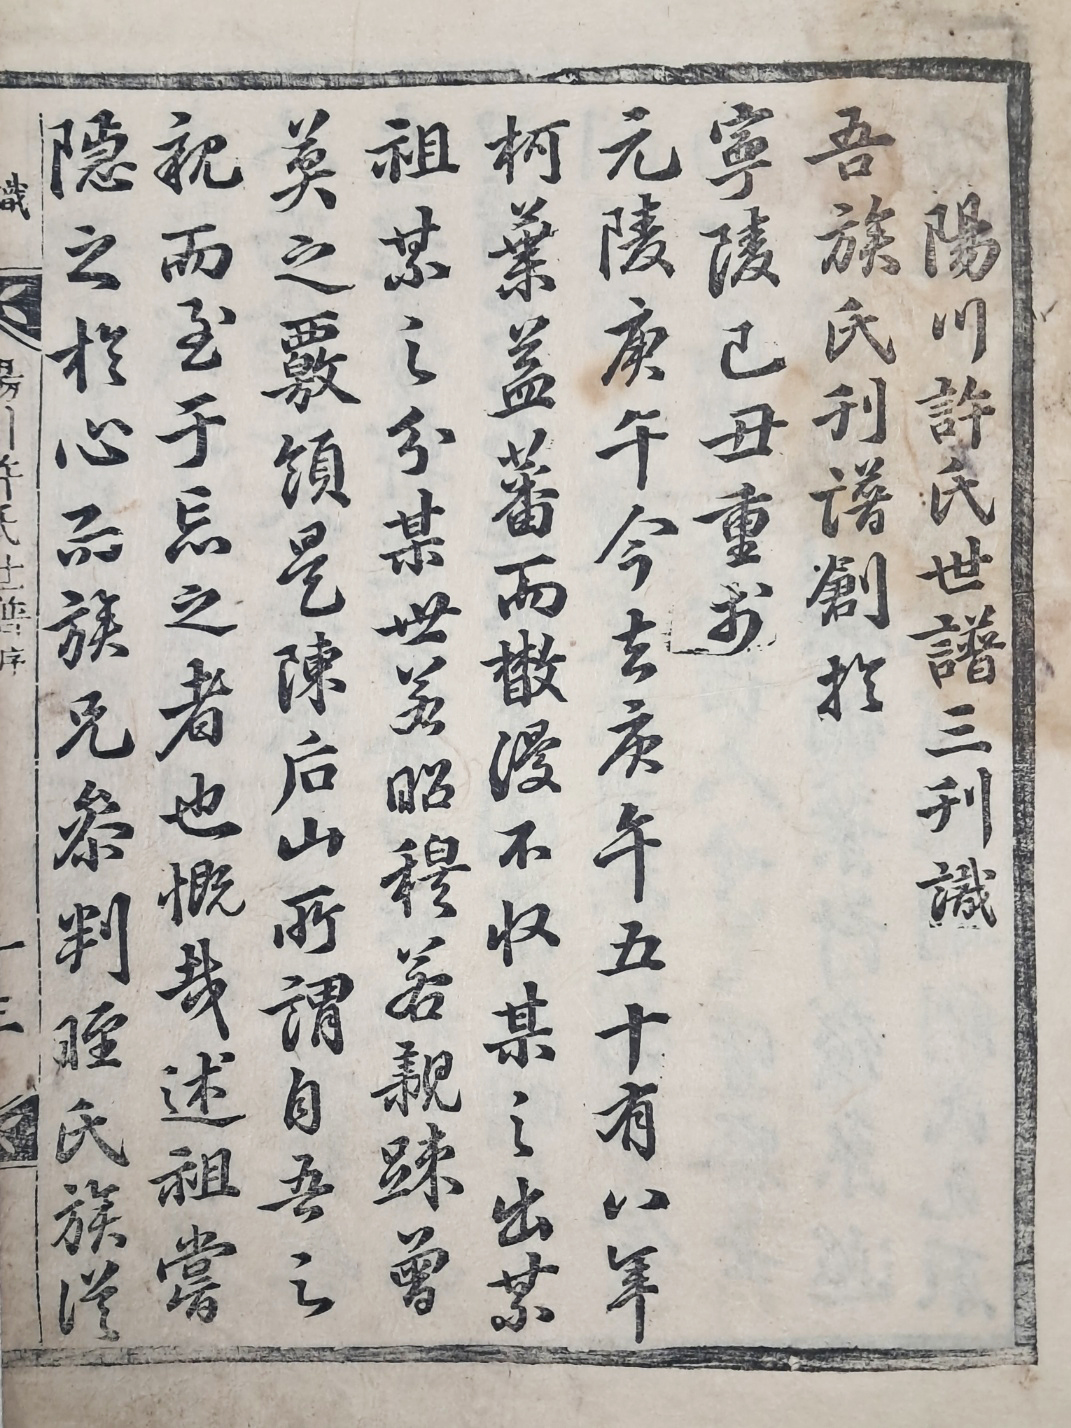 陽川許氏世譜三刊識
吾族氏刊譜創於
寧陵己丑重於
元陵庚午今去庚午五十有八年
柯葉益蕃而散漫不收某之出某
祖某之分某世若昭穆若親踈曾
莫之覈領是陳后山所謂自吾之
親而至于忘之者也慨哉述祖嘗
隱之於心而族兄參判晊氏族從
識
陽川許氏世譜序
十三